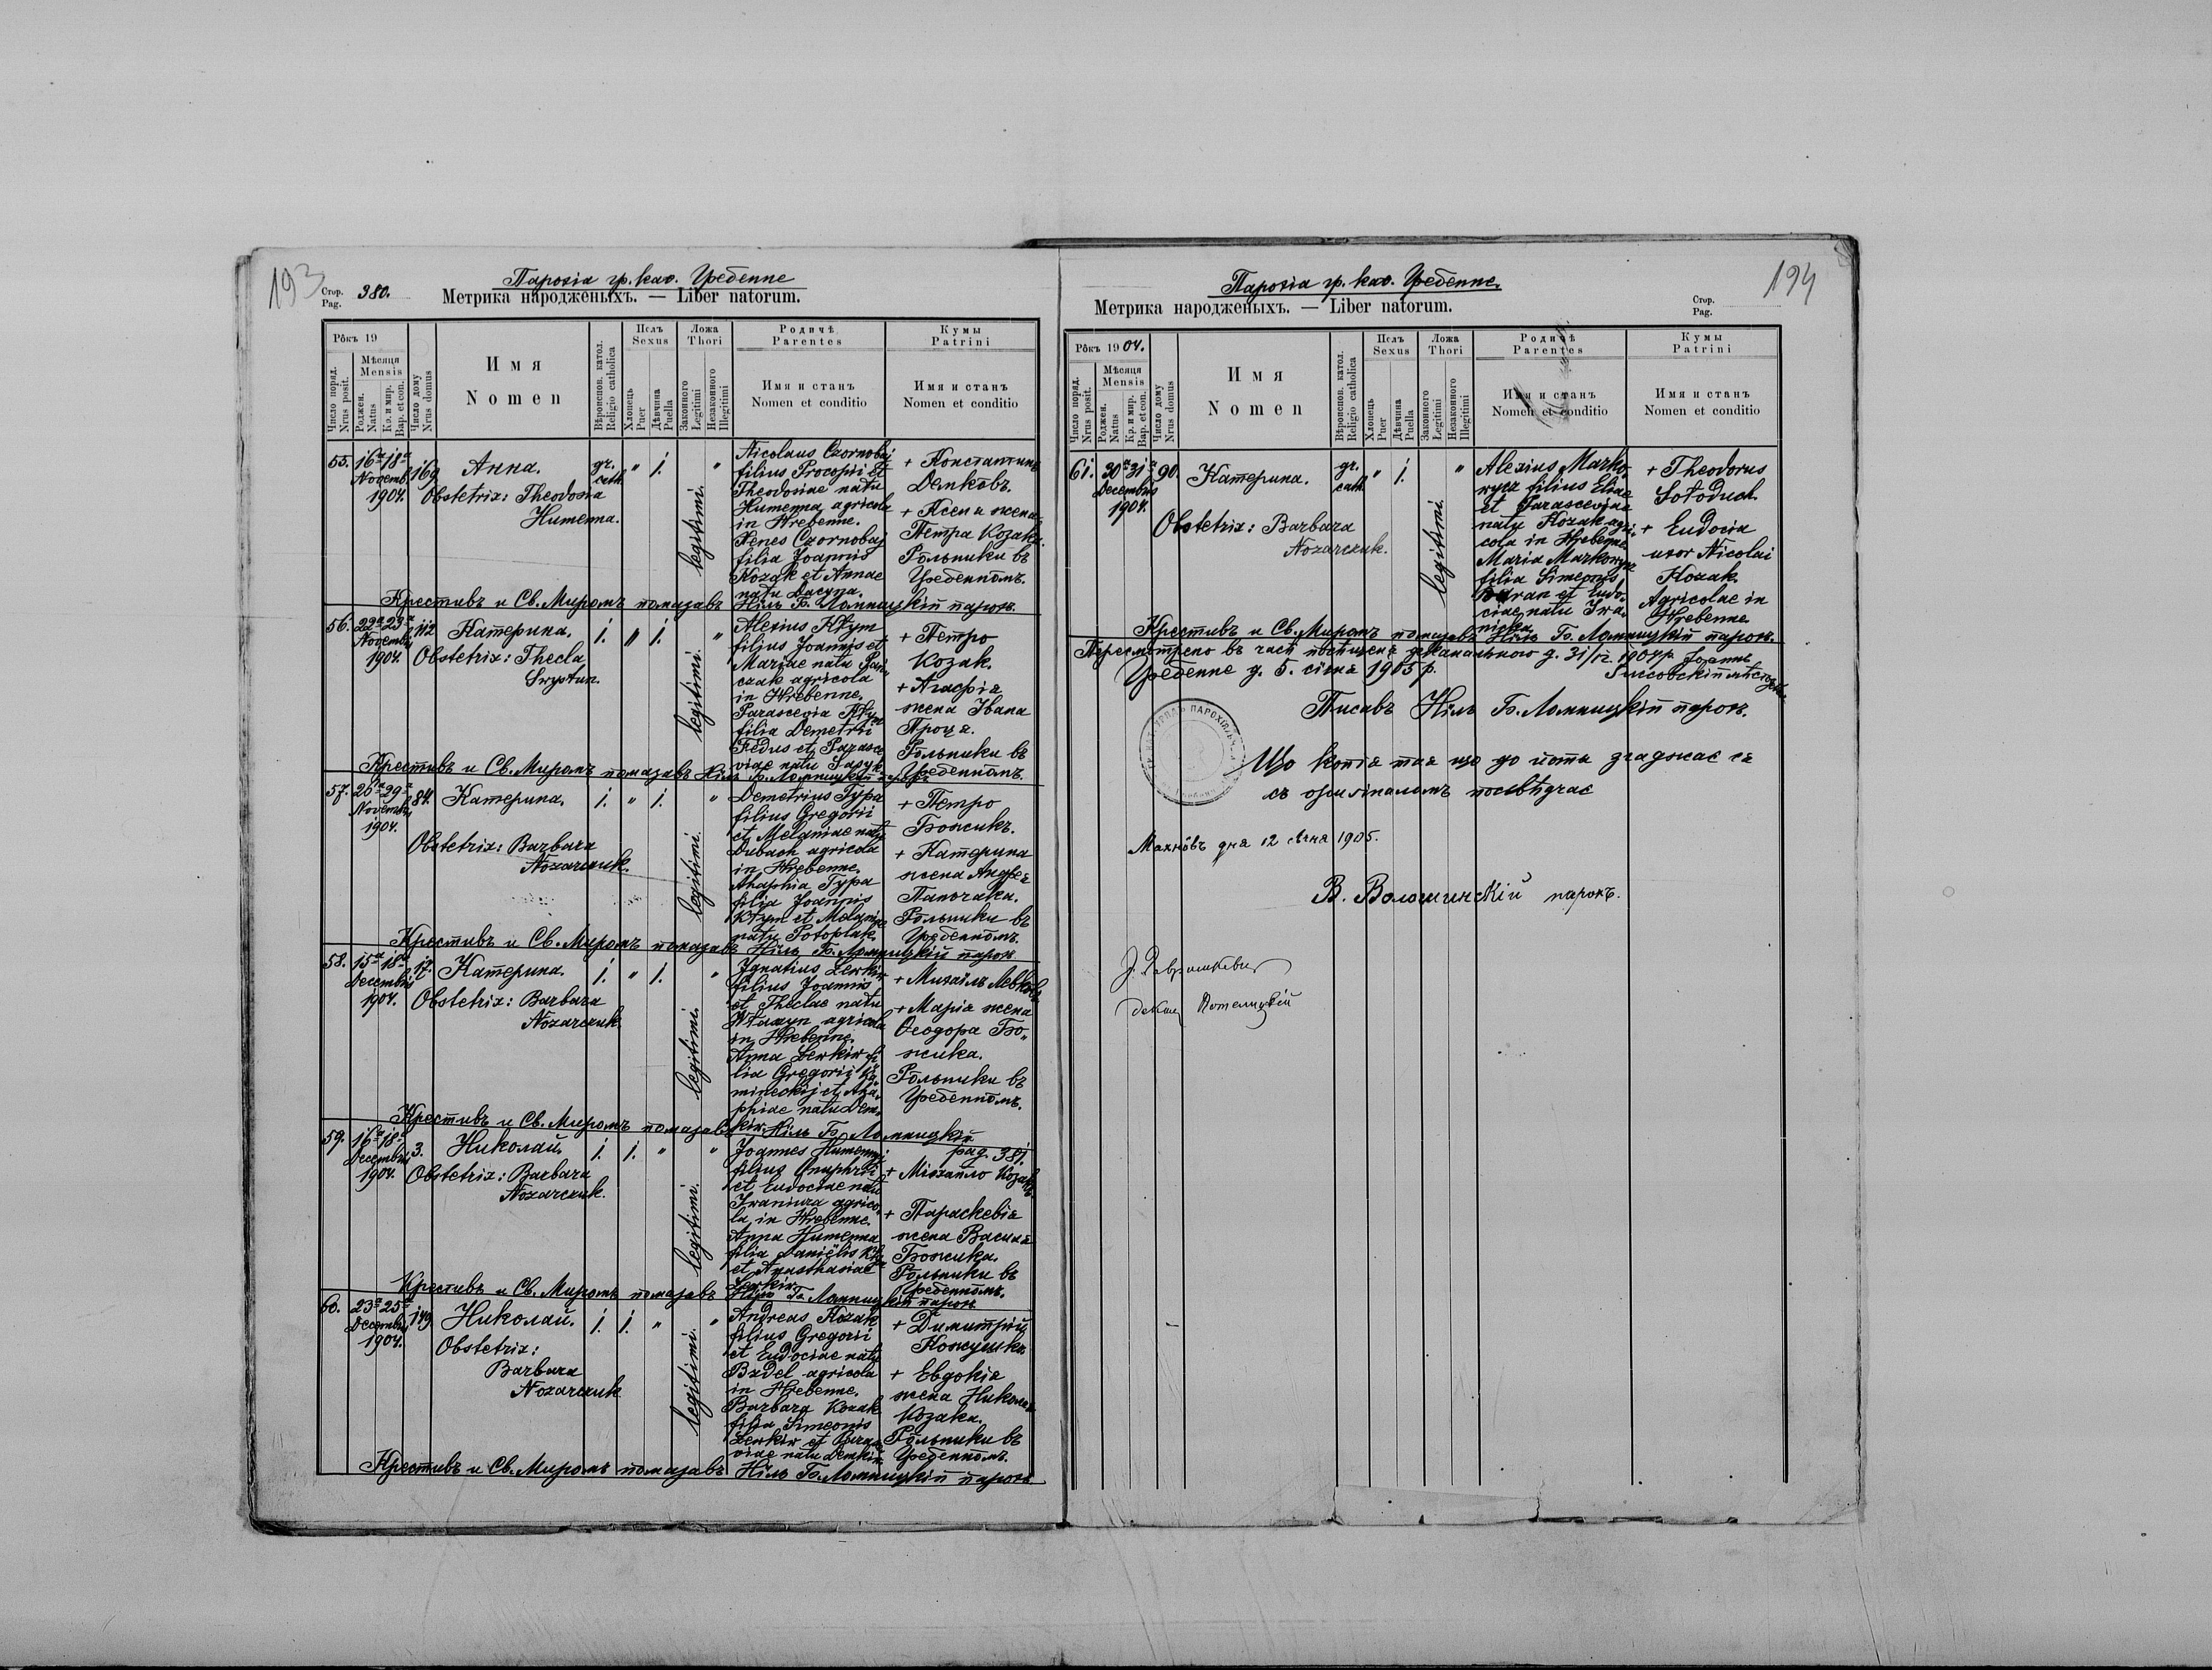 193
Парохія гр. кат. Гребенне
Стор. Pag. 380. Метрика народженыхъ. — Liber natorum.
Рôкъ 19
Число поряд. Nrus posit.
Мѣсяця Mensis
Роджен. Natus
Кр. и мир. Bap. et con.
Число дому Nrus domus
Имя Nomen
Вѣроиспов. катол. Religio catholica
Полъ Sexus
Хлопець Puer
Дѣвчина Puella
Ложа Thori
Законного Legitimi
Незаконного Illegitimi
Родичѣ Parentes
Имя и станъ Nomen et conditio
Кумы Patrini
Имя и станъ Nomen et conditio
55. 16ª 18ª Novemb. 1904. 169 Анна. gr. cath. " 1. legitimi. "
Obstetrix: Theodosia
Humenna.
Nicolaus Czornobaj
filius Procopii et
Theodosiae natu
Humenna agricola
in Hrebenne.
Xenes Czornobaj
filia Joannis
Kozak et Annae
natu Dacyna.
+ Константинъ
Демковъ.
+ Ксеня жена
Петра Козака.
Рольники въ
Гребенномъ.
Крестивъ и Св. Миромъ помазавъ Ніль Б. Ломницкій парох.
56. 22ª 23ª Novembr. 1904. 112 Катерина. 1. " 1. legitimi. "
Obstetrix: Thecla
Swystun.
Alexius Kłym
filius Joannis et
Mariae natu Pań
czak agricola
in Hrebenne.
Parascevia Kłym
filia Demetrii
Fedus et Parasce
viae natu Sasyk
+ Петро
Козак.
+ Агафія
жена Івана
Проця.
Рольники въ
Гребенномъ.
Крестивъ и Св. Миромъ помазавъ Ніль Б. Ломницкій парох.
57. 26ª 29ª Novembr. 1904. 84. Катерина. 1. " 1. legitimi. "
Obstetrix: Barbara
Nozarczuk.
Demetrius Gypa
filius Gregorii
et Melaniae natu
Dubach agricola
in Hrebenne.
Ahaphia Gypa
filia Joannis
Kłym et Melaniae
natu Potoplak.
+ Петро
Божикъ.
+ Катерина
жена Андрея
Паньчака.
Рольники въ
Гребенномъ.
Крестивъ и Св. Миромъ помазавъ Ніль Б. Ломницкій парох.
58. 15ª 18ª Decembris 1904. 17. Катерина. 1. " 1. legitimi. "
Obstetrix: Barbara
Nozarczuk.
Ignatius Lewkiw
filius Joannis
et Theclae natu
agricola
in Hrebenne.
Anna Lewkiw fi
lia Gregorii
et Aga„
phiae natu Dem„
kiw.
+ Михаилъ Левковъ
+ Марія жена
Ѳеодора Бо„
жика.
Рольники въ
Гребенномъ.
Крестивъ и Св. Миромъ помазавъ Ніль Б. Ломницкій
59. 16ª 18ª Decembris 1904. 3. Николай. 1. 1. " legitimi. "
Obstetrix: Barbara
Nozarczuk.
Joannes Humennyj
filius Onuphrii
et Eudociae natu
Iwaniura agrico„
la in Hrebenne.
Anna Humenna
filia Daniëlis
et Anasthasiae
Lewkiw
pag. 381.
+ Міхайло Козакъ
+ Параскевія
жена Василя
Божика.
Рольники въ
Гребенномъ.
Крестивъ и Св. Миромъ помазавъ Ніль Б. Ломницкій парох
60. 23ª 25ª Decembris 1904. 149 Николай. 1. 1. " legitimi. "
Obstetrix:
Barbara
Nozarczuk
Andreas Kozak
filius Gregorii
et Eudociae natu
Bzdel agricola
in Hrebenne.
Barbara Kozak
filia Simeonis
Lewkiw et Parasce
viae natu Demkiw
+ Димитрій
Кожушко
+ Евдокія
жена Николая
Козака.
Рольники въ
Гребенномъ.
Крестивъ и Св. Миромъ помазавъ Ніль Б. Ломницкій парох
194
Парохія гр. кат. Гребенне.
Метрика народженыхъ. — Liber natorum. Стор. Pag.
Рôкъ 1904.
Число поряд. Nrus posit.
Мѣсяця Mensis
Роджен. Natus
Кр. и мир. Bap. et con.
Число дому Nrus domus
Имя Nomen
Вѣроиспов. катол. Religio catholica
Полъ Sexus
Хлопець Puer
Дѣвчина Puella
Ложа Thori
Законного Legitimi
Незаконного Illegitimi
Родичѣ Parentes
Имя и станъ Nomen et conditio
Кумы Patrini
Имя и станъ Nomen et conditio
61. 30ª 31ª Decembris 1904. 90. Катерина. gr. cath. " 1. legitimi. "
Obstetrix: Barbara
Nozarczuk.
Alexius Marko„
wycz filius Eliae
et Parasceviae
natu Kozak agri„
cola in Hrebenne.
Maria Markowycz
filia Simeonis
Baran et Eudo„
ciae natu Iwa„
nicka.
+ Theodorus
Sołoduch.
+ Eudocia
uxor Nicolai
Kozak.
Agricolae in
Hrebenne.
Крестивъ и Св. Миромъ помазавъ Ніль Б. Ломницкій парох.
Пересмотрено въ часѣ посѣщенія деканального д. 31/12. 1904 р.
Гребенне д. 5. січня 1905 р.
Писавъ Ніль Б. Ломницкій парох.
Що копія тая що до йоты згаджає ся
съ оригіналомъ посвѣдчає
Махнôвъ дня 12 сѣчня 1905.
В. Волошинскій парохъ.
декан Потелицкій